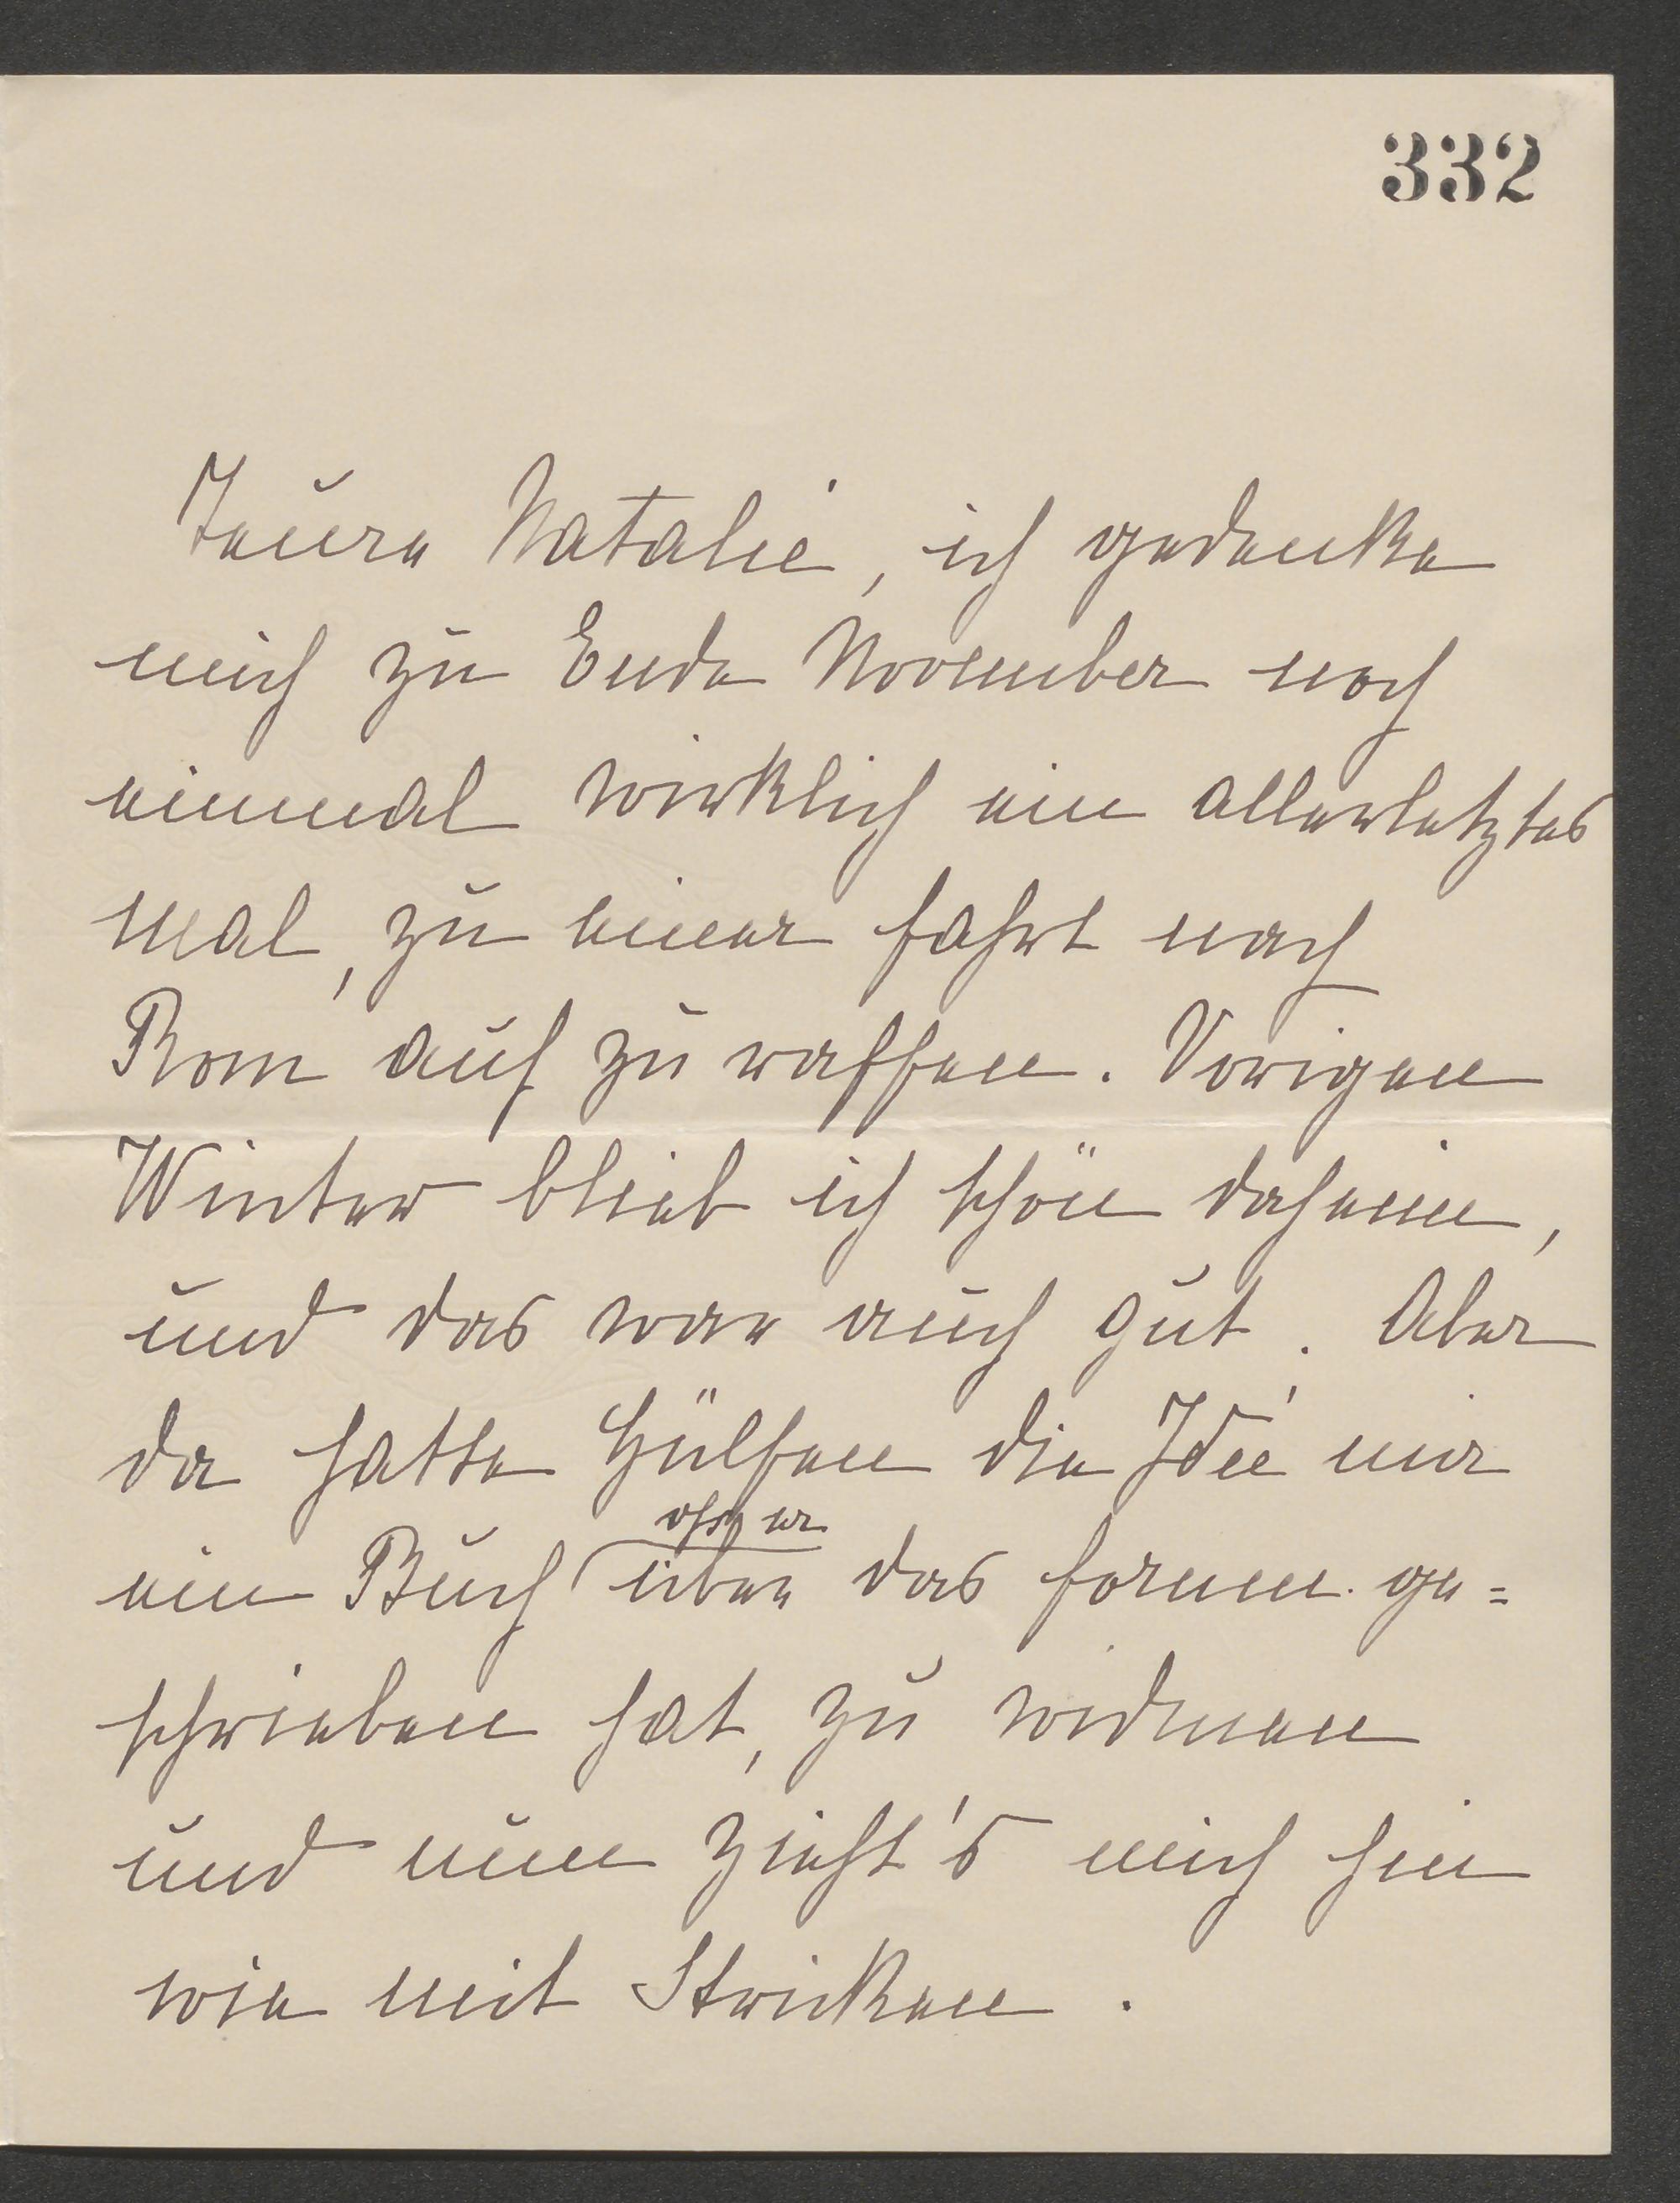 332
Teure Natalie, ich gedenke
mich zu Ende November noch
einmal wirklich ein allerletztes
mal, zu einer fahrt nach
Rom auf zu raffen. Vorigen
Winter blieb ich schön daheim,
und das war auch gut. Aber
da hatte Hülsen die Idee mir
ein Buch über das forum ge=
schrieben hat, zu widmen
und nun zieht's mich hin
wie mit Stricken.